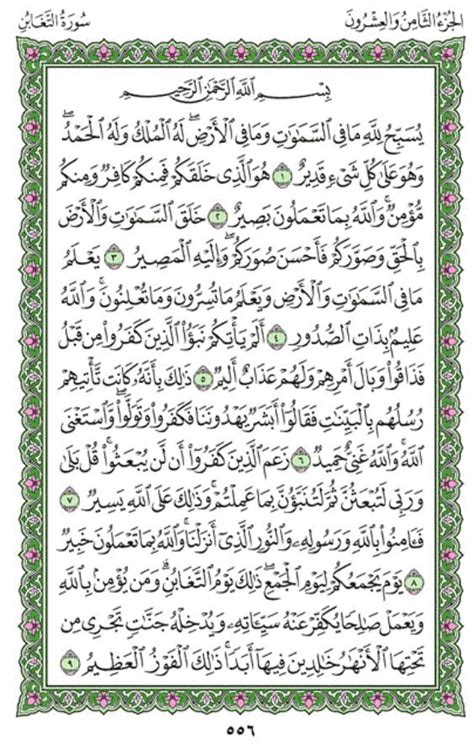 الجزء الثامن والعشرون
سورة التغابن
بِسْمِ ٱللَّهِ ٱلرَّحْمَٰنِ ٱلرَّحِيمِ
يُسَبِّحُ لِلَّهِ مَا فِي ٱلسَّمَٰوَٰتِ وَمَا فِي ٱلْأَرْضِۖ لَهُ ٱلْمُلْكُ وَلَهُ ٱلْحَمْدُۖ
وَهُوَ عَلَىٰ كُلِّ شَيْءٍ قَدِيرٌ ١ هُوَ ٱلَّذِي خَلَقَكُمْ فَمِنكُمْ كَافِرٌ وَمِنكُم
مُّؤْمِنٌۚ وَٱللَّهُ بِمَا تَعْمَلُونَ بَصِيرٌ ٢ خَلَقَ ٱلسَّمَٰوَٰتِ وَٱلْأَرْضَ
بِٱلْحَقِّ وَصَوَّرَكُمْ فَأَحْسَنَ صُوَرَكُمْۖ وَإِلَيْهِ ٱلْمَصِيرُ ٣ يَعْلَمُ
مَا فِي ٱلسَّمَٰوَٰتِ وَٱلْأَرْضِ وَيَعْلَمُ مَا تُسِرُّونَ وَمَا تُعْلِنُونَۚ وَٱللَّهُ
عَلِيمٌۢ بِذَاتِ ٱلصُّدُورِ ٤ أَلَمْ يَأْتِكُمْ نَبَؤُاْ ٱلَّذِينَ كَفَرُواْ مِن قَبْلُ
فَذَاقُواْ وَبَالَ أَمْرِهِمْ وَلَهُمْ عَذَابٌ أَلِيمٌ ٥ ذَٰلِكَ بِأَنَّهُۥ كَانَت تَّأْتِيهِمْ
رُسُلُهُم بِٱلْبَيِّنَٰتِ فَقَالُوٓاْ أَبَشَرٌ يَهْدُونَنَا فَكَفَرُواْ وَتَوَلَّواْۖ وَّٱسْتَغْنَى
ٱللَّهُۚ وَٱللَّهُ غَنِيٌّ حَمِيدٌ ٦ زَعَمَ ٱلَّذِينَ كَفَرُوٓاْ أَن لَّن يُبْعَثُواْۚ قُلْ بَلَىٰ
وَرَبِّي لَتُبْعَثُنَّ ثُمَّ لَتُنَبَّؤُنَّ بِمَا عَمِلْتُمْۚ وَذَٰلِكَ عَلَى ٱللَّهِ يَسِيرٌ ٧
فَـَٔامِنُواْ بِٱللَّهِ وَرَسُولِهِۦ وَٱلنُّورِ ٱلَّذِيٓ أَنزَلْنَاۚ وَٱللَّهُ بِمَا تَعْمَلُونَ خَبِيرٌ
٨ يَوْمَ يَجْمَعُكُمْ لِيَوْمِ ٱلْجَمْعِۖ ذَٰلِكَ يَوْمُ ٱلتَّغَابُنِۗ وَمَن يُؤْمِنۢ بِٱللَّهِ
وَيَعْمَلْ صَٰلِحًا يُكَفِّرْ عَنْهُ سَيِّـَٔاتِهِۦ وَيُدْخِلْهُ جَنَّٰتٍ تَجْرِي مِن
تَحْتِهَا ٱلْأَنْهَٰرُ خَٰلِدِينَ فِيهَآ أَبَدًاۚ ذَٰلِكَ ٱلْفَوْزُ ٱلْعَظِيمُ ٩
٥٥٦